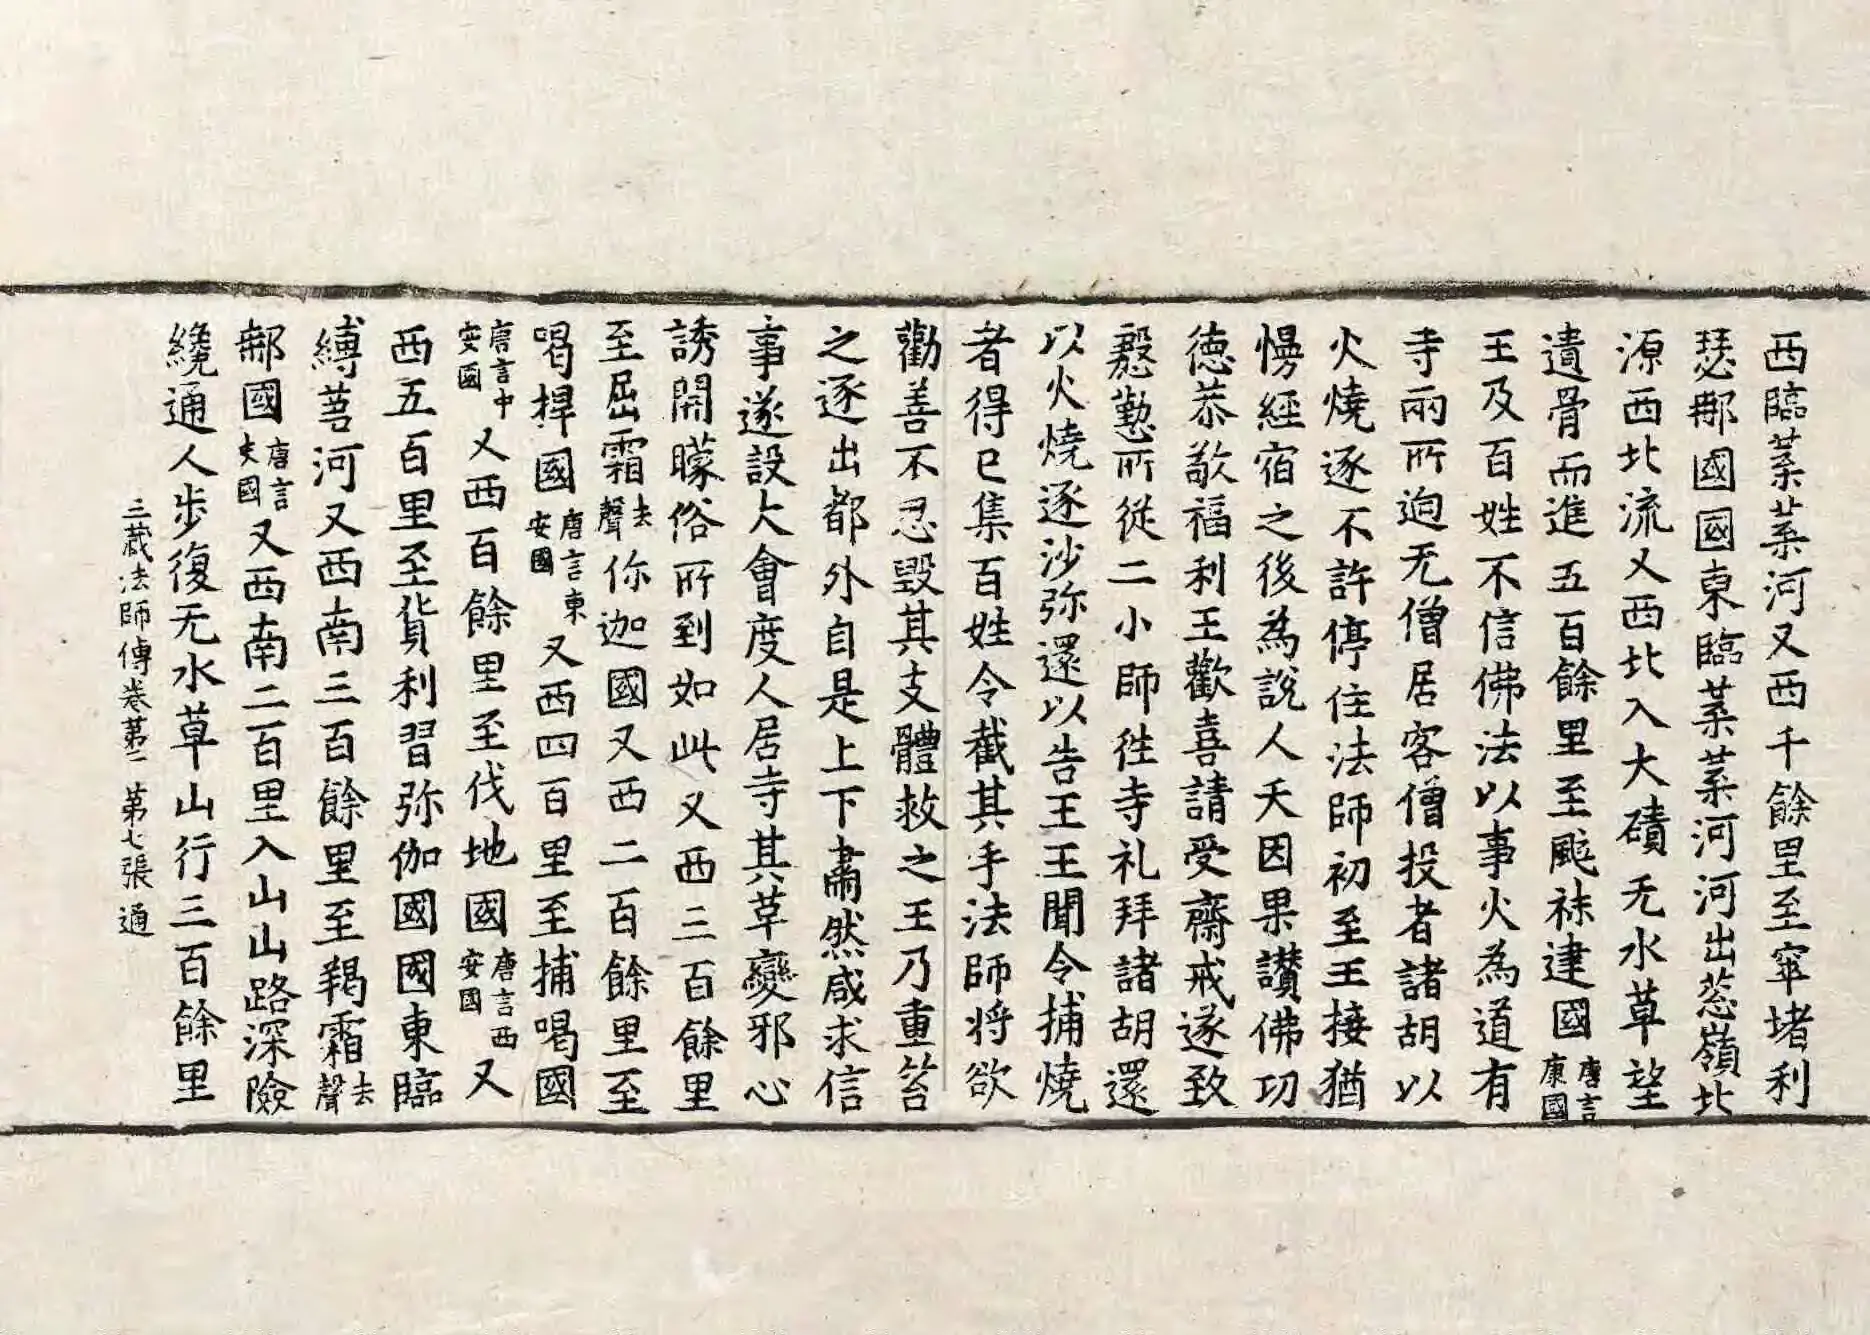 西臨葉葉河又西千餘里至窣堵利
瑟那國國東臨葉葉河河出葱嶺北
源西北流又西北入大磧无水草望
遺骨而進五百餘里至颯袜建國唐言康國
王及百姓不信佛法以事火為道有
寺兩所逈无僧居客僧投者諸胡以
火燒逐不許停住法師初至王接猶
慢經宿之後為說人天因果讚佛功
德恭敬福利王歡喜請受齋戒遂致
慇懃所從二小師徃寺礼拜諸胡還
以火燒逐沙弥還以告王王聞令捕燒
者得已集百姓令截其手法師将欲
勸善不忍毀其支體救之王乃重笞
之逐出都外自是上下肅然咸求信
事遂設大會度人居寺其革變邪心
誘開矇俗所到如此又西三百餘里
至屈霜去聲你迦國又西二百餘里至
喝捍國唐言東安國又西四百里至捕喝國
唐言中安國又西百餘里至伐地國唐言西安國又
西五百里至貨利習弥伽國國東臨
縛芻河又西南三百餘里至羯霜去聲
那國唐言史國又西南二百里入山山路深險
纔通人步復无水草山行三百餘里
三藏法師傳卷苐二 第七張 通